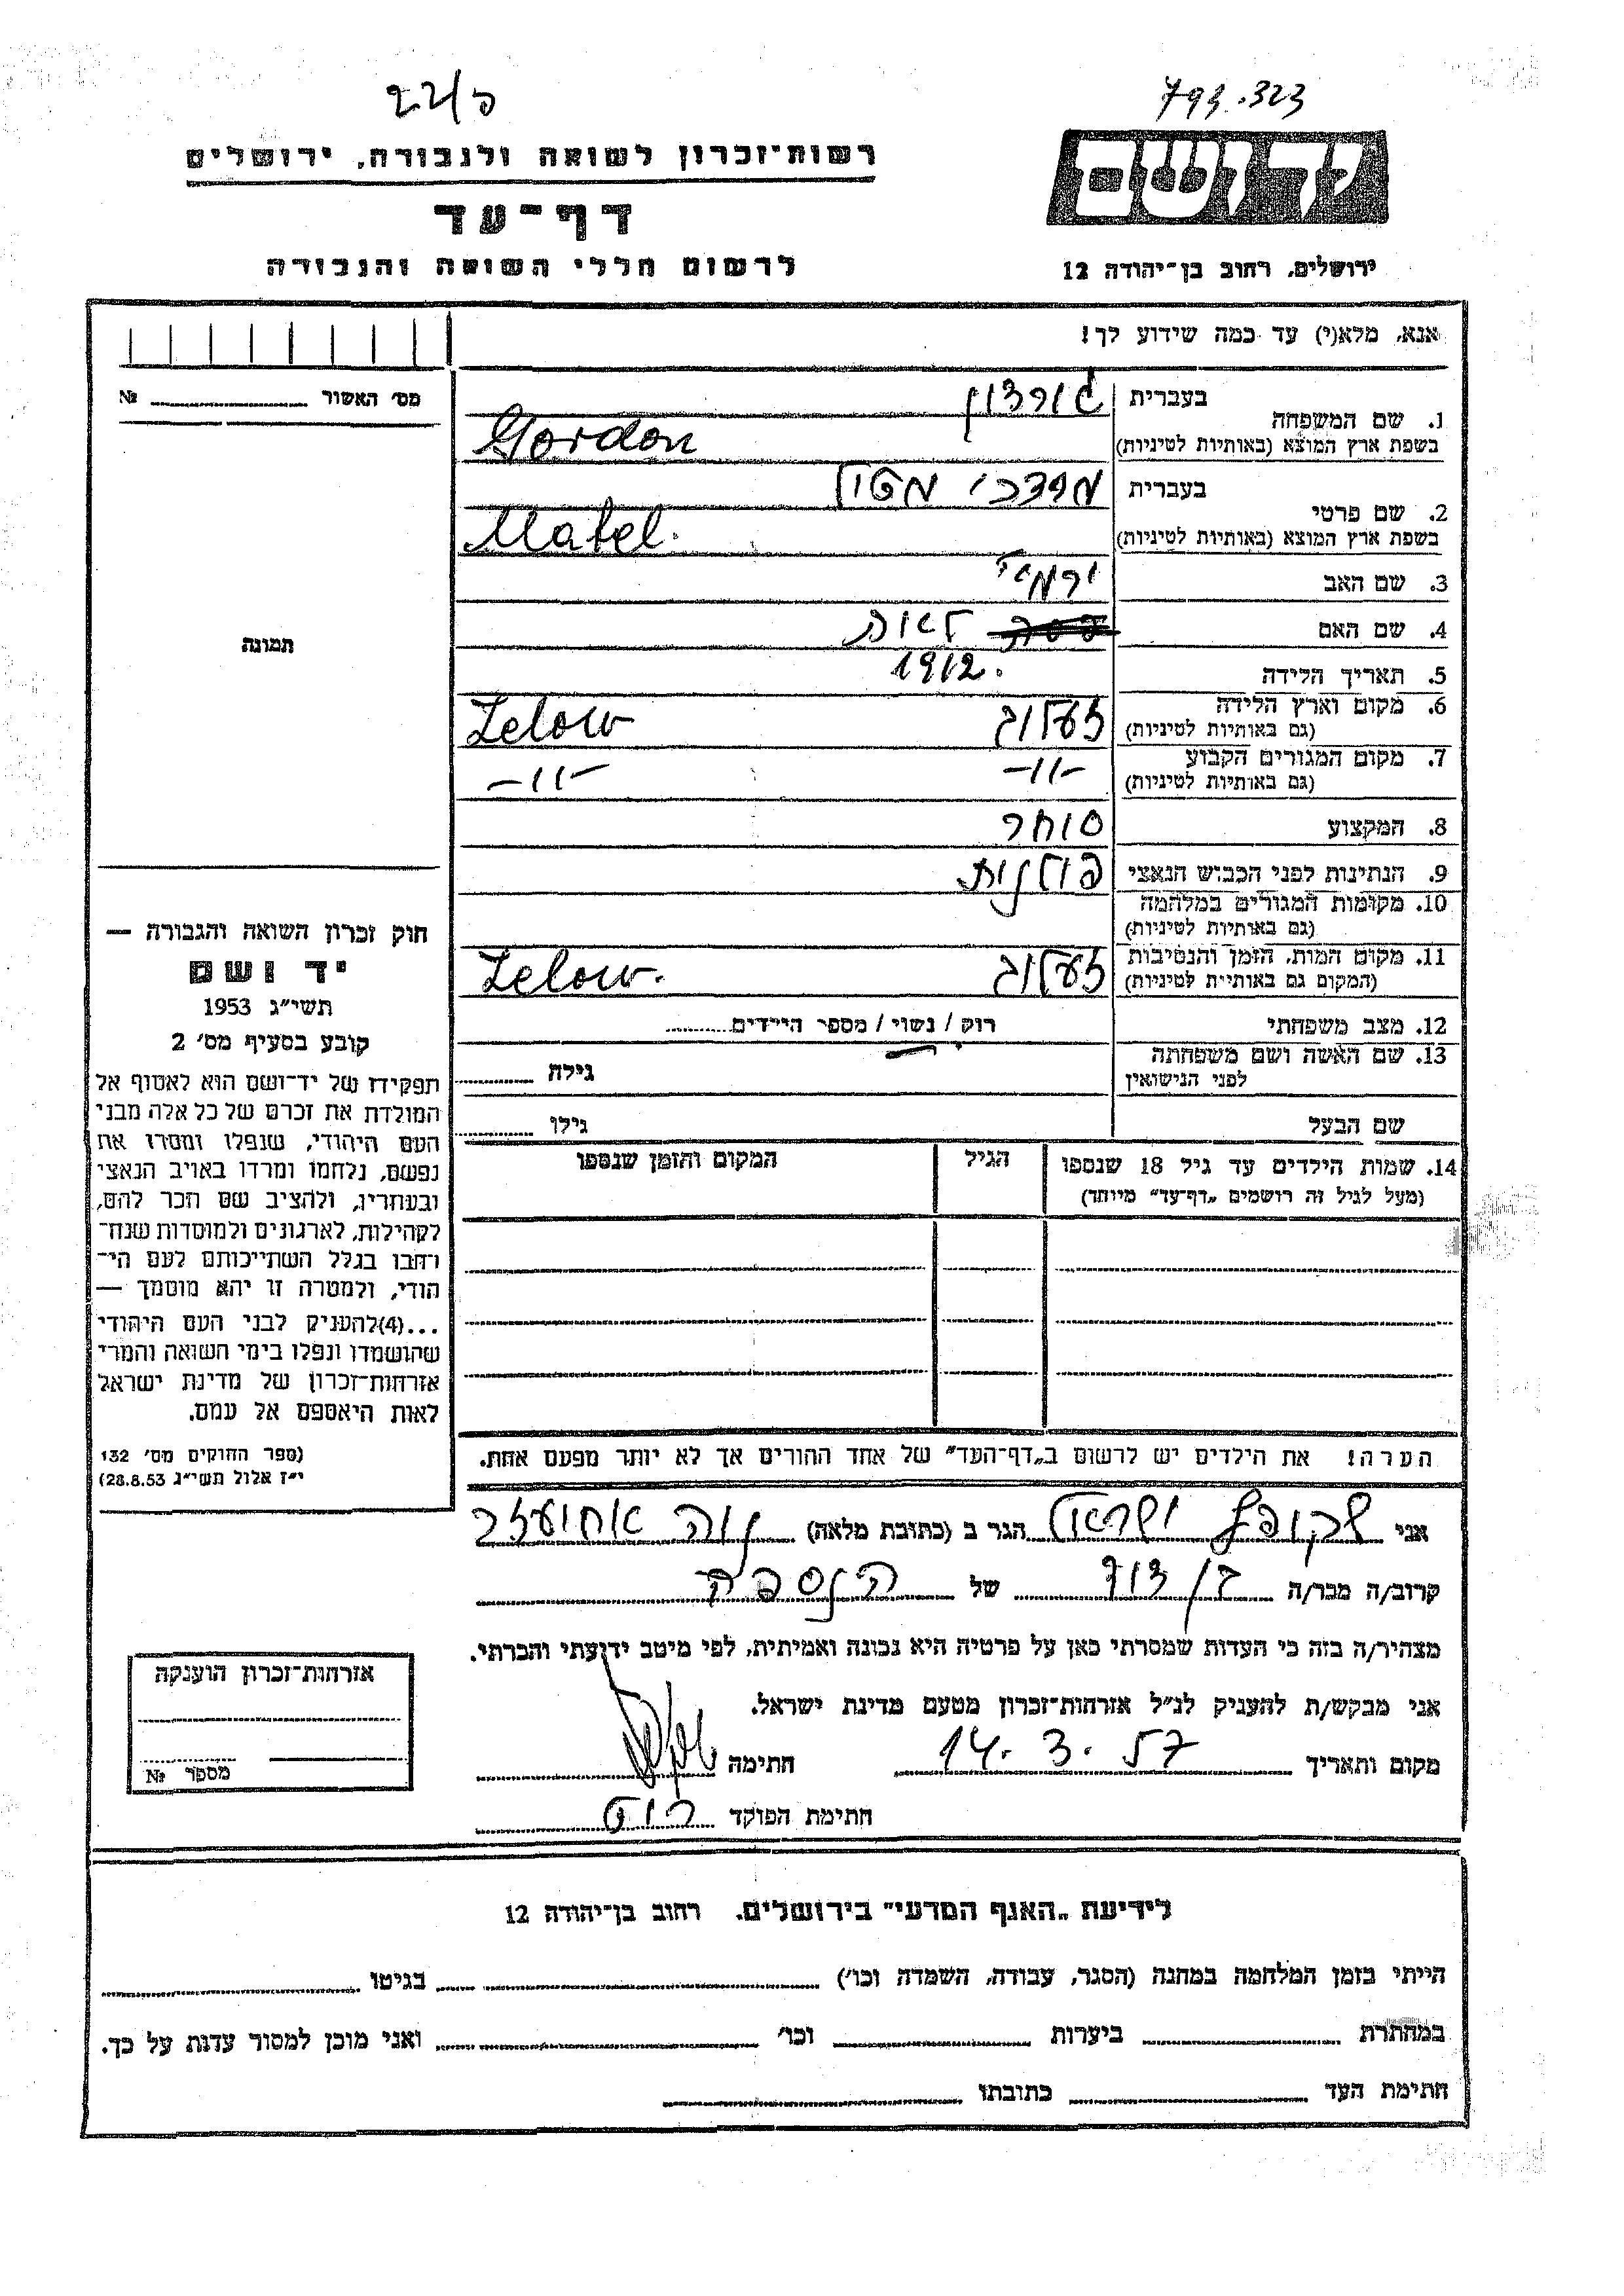 22/פ
793.323
רשות־זכרון לשואה ולגבורה, ירושלים
דף־עד
לרשום חללי השואה והגבורה
יד ושם
ירושלים, רחוב בן־יהודה 12
אנא, מלא(י) עד כמה שידוע לך!
מס׳ האשור № 
1. שם המשפחה בעברית גורדון
בשפת ארץ המוצא (באותיות לטיניות) Gordon
2. שם פרטי בעברית מרדכי מטול
בשפת ארץ המוצא (באותיות לטיניות) Matel.
3. שם האב ירמי׳
4. שם האם לאה
5. תאריך הלידה 1912.
6. מקום וארץ הלידה (גם באותיות לטיניות) זעלוב Zelow
7. מקום המגורים הקבוע (גם באותיות לטיניות) -11- -11-
8. המקצוע סוחר
9. הנתינות לפני הכבוש הנאצי פולנית
10. מקומות המגורים במלחמה (גם באותיות לטיניות)
11. מקום המות, הזמן והנסיבות (המקום גם באותיות לטיניות) זעלוב Zelow.
12. מצב משפחתי רוק / נשוי / מספר הילדים
13. שם האשה ושם משפחתה לפני הנישואין גילה
שם הבעל גילו
14. שמות הילדים עד גיל 18 שנספו הגיל המקום והזמן שנספו
(מעל לגיל זה רושמים „דף־עד" מיוחד)
הערה! את הילדים יש לרשום ב„דף־העד" של אחד ההורים אך לא יותר מפעם אחת.
תמונה
חוק זכרון השואה והגבורה —
יד ושם
תשי״ג 1953
קובע בסעיף מס׳ 2
תפקידו של יד־ושם הוא לאסוף אל
המולדת את זכרם של כל אלה מבני
העם היהודי, שנפלו ומסרו את
נפשם, נלחמו ומרדו באויב הנאצי
ובעוזריו, ולהציב שם וזכר להם,
לקהילות, לארגונים ולמוסדות שנח־
רבו בגלל השתייכותם לעם הי־
הודי, ולמטרה זו יהא מוסמך —
...(4)להעניק לבני העם היהודי
שהושמדו ונפלו בימי השואה והמרי
אזרחות־זכרון של מדינת ישראל
לאות היאספם אל עמם.
(ספר החוקים מס׳ 132
י״ז אלול תשי״ג 28.8.53)
אני ישראל הגר ב (כתובת מלאה) נוה אחיעזר
קרוב/ה מכר/ה בן דוד של הנספה
מצהיר/ה בזה כי העדות שמסרתי כאן על פרטיה היא נכונה ואמיתית, לפי מיטב ידיעתי והכרתי.
אני מבקש/ת להעניק לנ״ל אזרחות־זכרון מטעם מדינת ישראל.
מקום ותאריך 14. 3. 57 חתימה
חתימת הפוקד
אזרחות־זכרון הוענקה
מספר №
לידיעת „האגף המדעי" בירושלים, רחוב בן־יהודה 12
הייתי בזמן המלחמה במחנה (הסגר, עבודה, השמדה וכו׳) בגיטו
במחתרת ביערות וכו׳ ואני מוכן למסור עדות על כך.
חתימת העד כתובתו